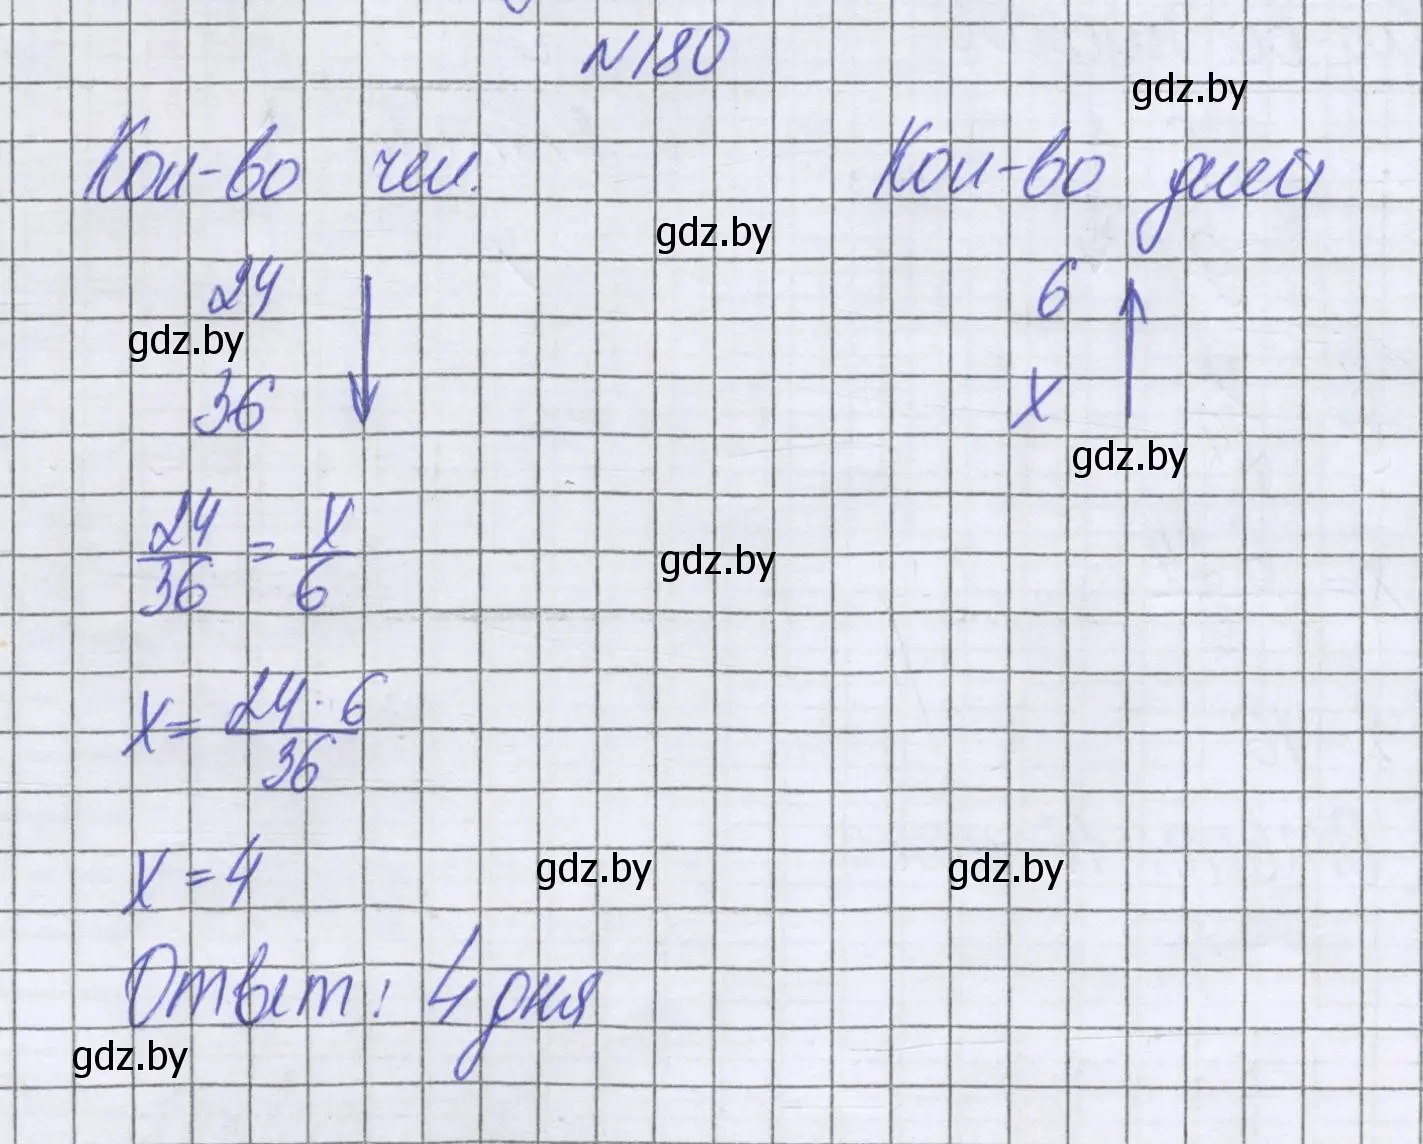 №180
gdz.by
Кол-во чел. Кол-во дней
gdz.by
24 6
gdz.by
36 x
gdz.by
24/36 = x/6
gdz.by
x = 24·6/36
x = 4
gdz.by gdz.by
Ответ: 4 дня
gdz.by